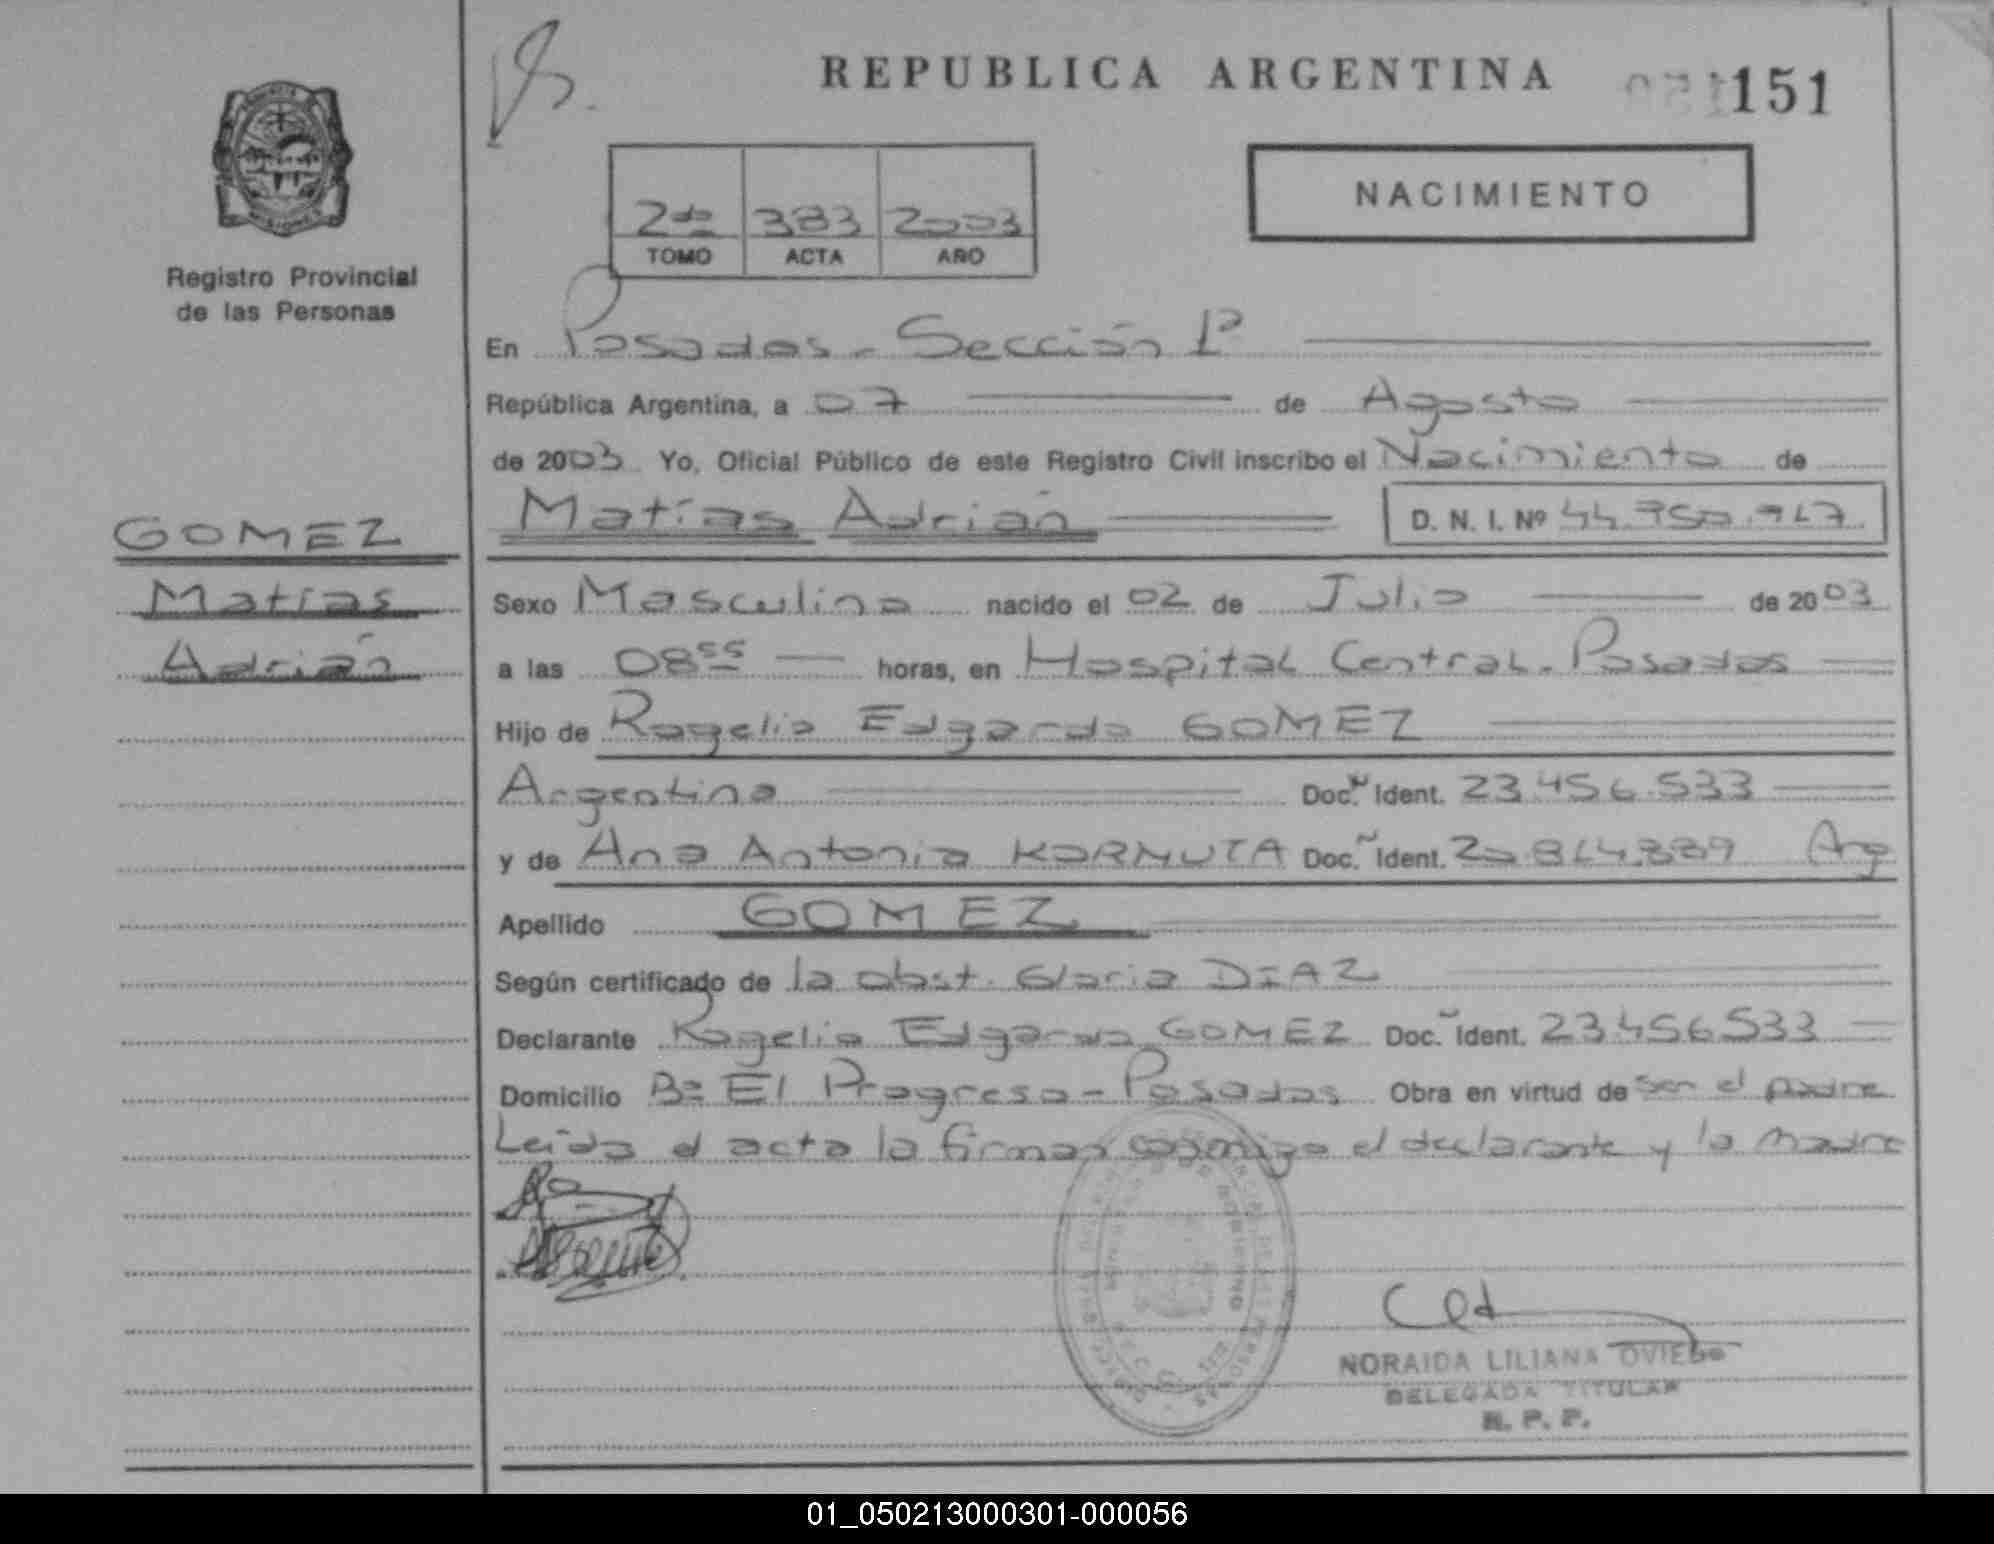 REPUBLICA ARGENTINA
151
Registro Provincial
de las Personas
2do 383 2003
TOMO ACTA AÑO
NACIMIENTO
En Posadas - Sección 1ª
República Argentina, a 07 de Agosto
de 2003 Yo, Oficial Público de este Registro Civil inscribo el Nacimiento de
GOMEZ
Matías
Adrián
Matías Adrián D. N. I. Nº
Sexo Masculino nacido el 02 de Julio de 2003
a las 08 55 horas, en Hospital Central - Posadas
Hijo de Rogelio Edgardo GOMEZ
Argentina Doc. Ident. 23.456.533
y de Ana Antonia KARMUTA Doc. Ident. Arg
Apellido GOMEZ
Según certificado de la obst. Gloria DIAZ
Declarante Rogelio Edgardo GOMEZ Doc. Ident. 23.456.533
Domicilio Bº El Progreso - Posadas Obra en virtud de ser el padre
Leida el acta la firman conmigo el declarante y la madre
NORAIDA LILIANA OVIEDO
DELEGADA TITULAR
R. P. P.
01_050213000301-000056